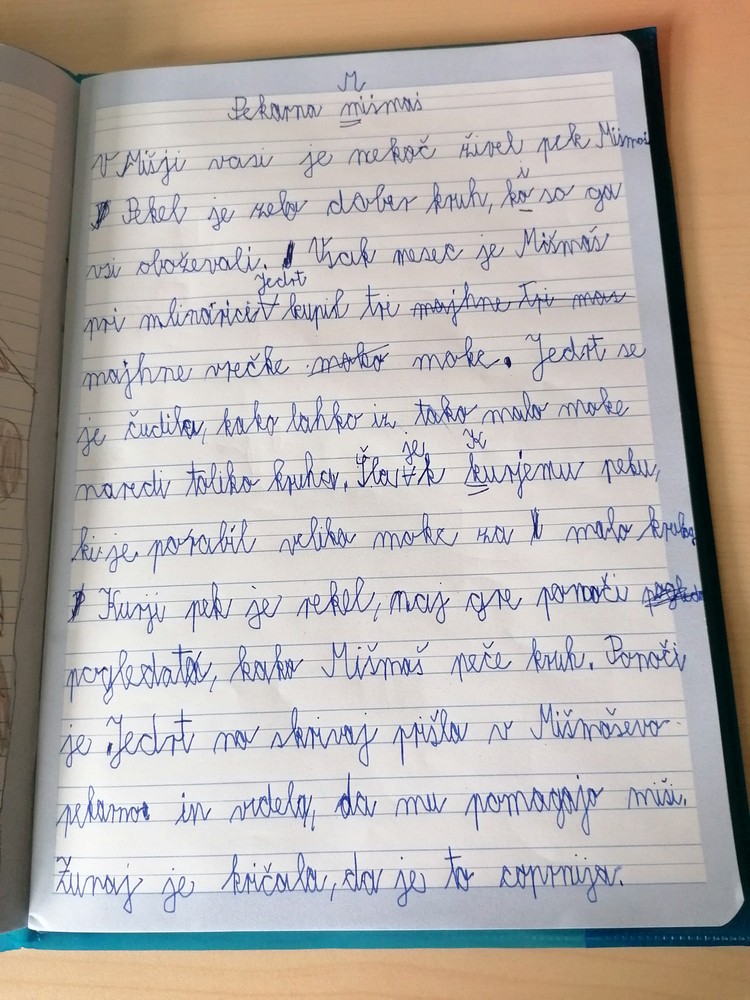 Pekarna Mišmaš
V Mišji vasi je nekoč živel pek Mišmaš
Pekel je zelo dober kruh, ki so ga
vsi oboževali. Vsak mesec je Mišmaš
pri mlinarici Jedrt kupil tri majhne tri
majhne vrečke moko moke. Jedrt se
je čudila, kako lahko iz tako malo moke
naredi toliko kruha. Šla je k Kurjemu peku,
ki je porabil velika moke za malo kruha
Kurji pek je rekel, naj gre ponoči
pogledata, kako Mišmaš peče kruh. Ponoči
je Jedrt na skrivaj prišla v Mišmaševo
pekarno in videla, da mu pomagajo miši.
Zunaj je kričala, da je to coprnija.